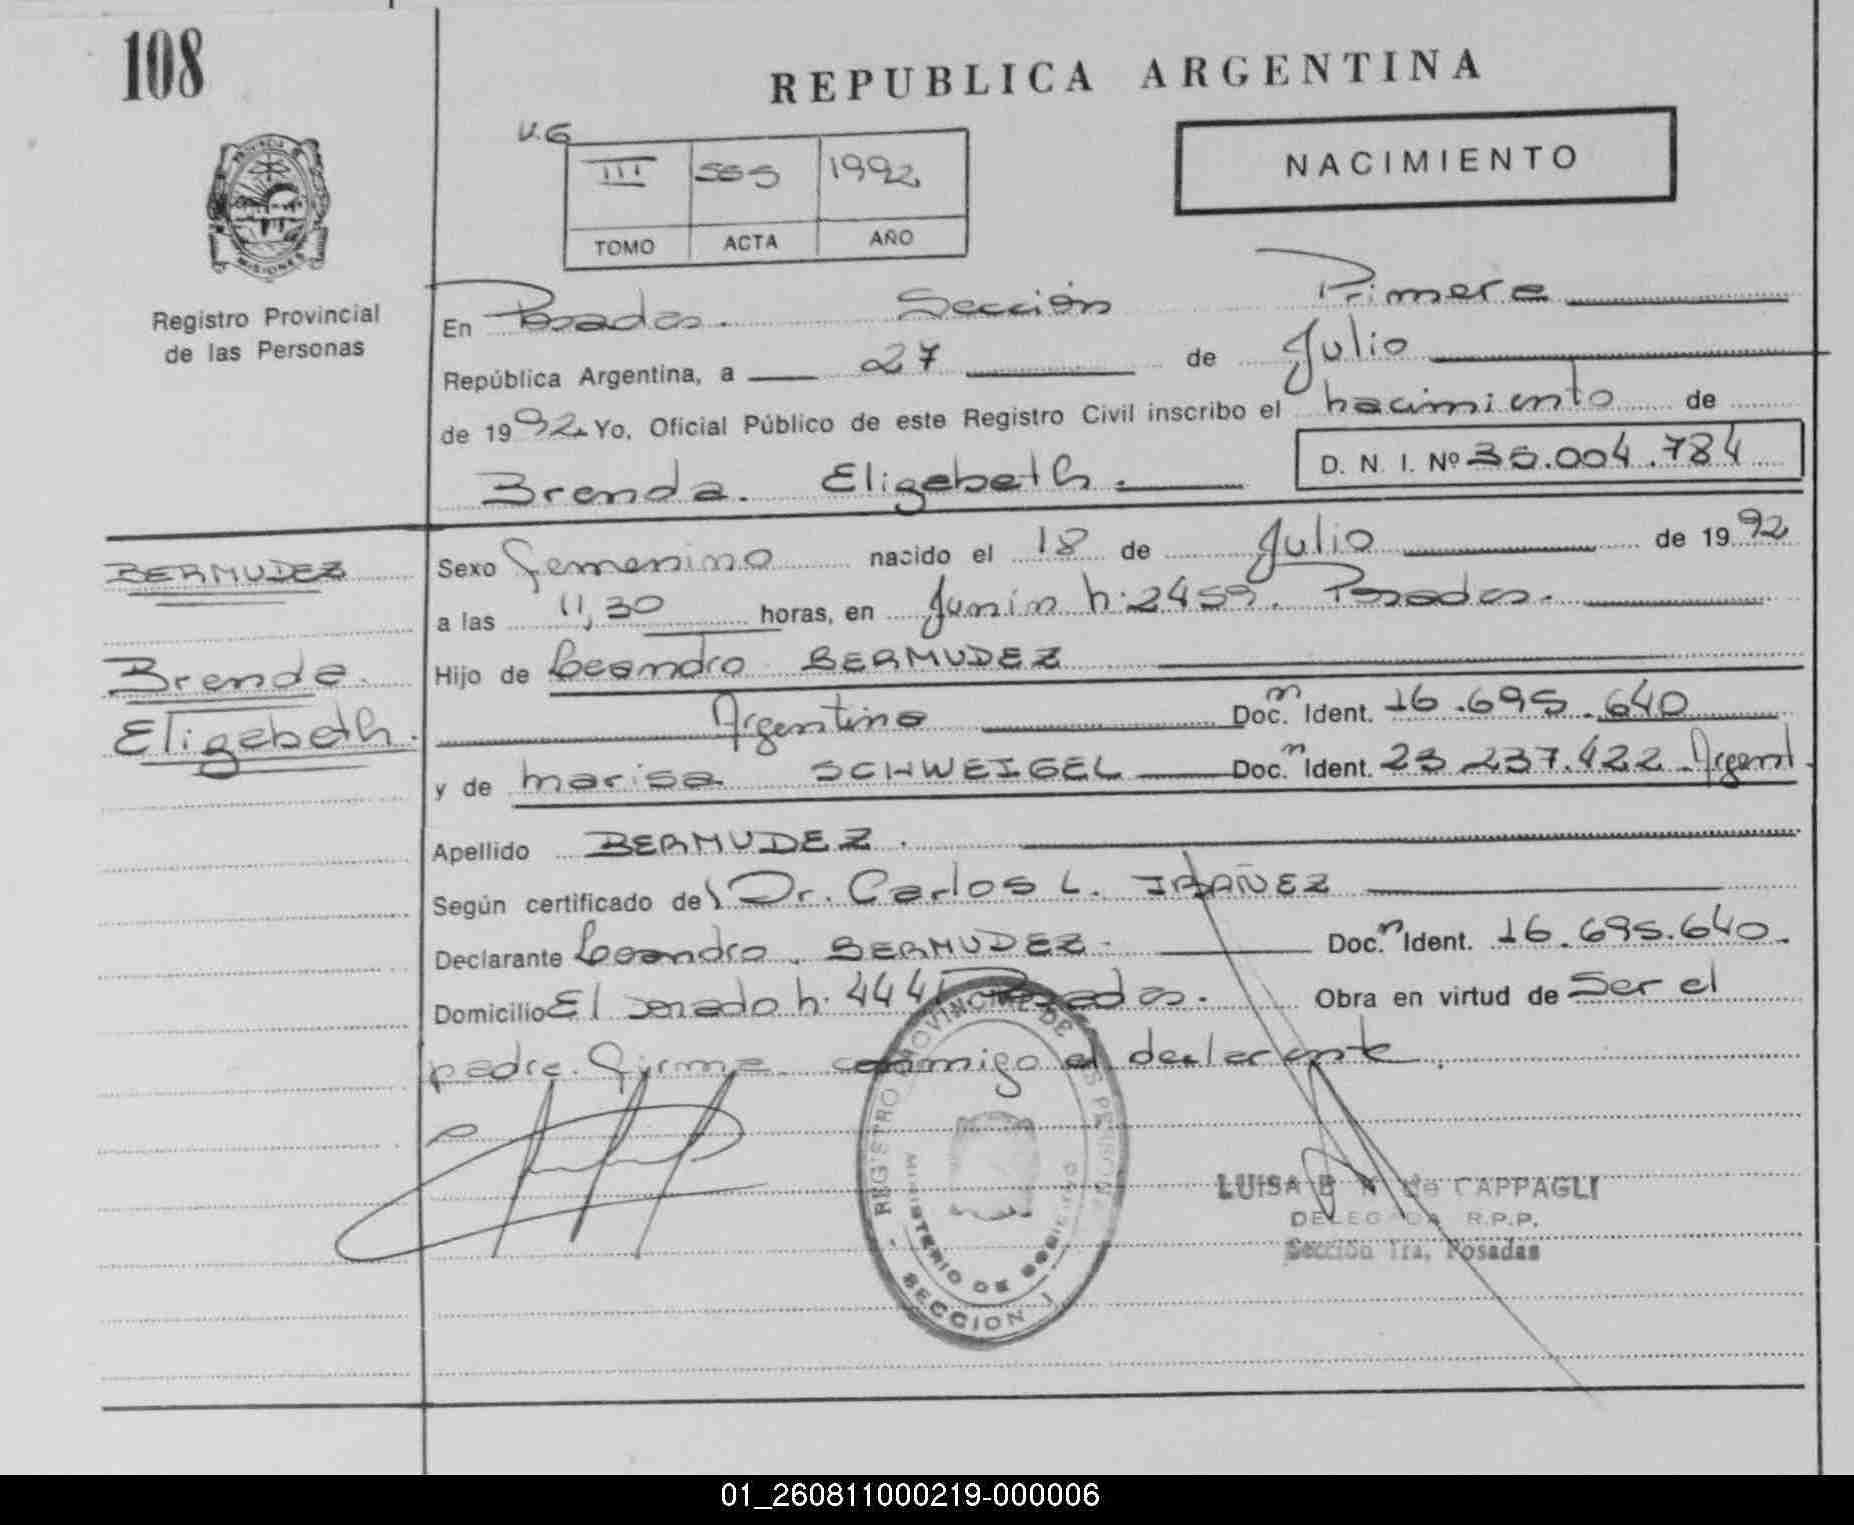 108
REPUBLICA ARGENTINA
V.G
III 555 1992
TOMO ACTA AÑO
NACIMIENTO
PROVINCIA DE
MISIONES
Registro Provincial
de las Personas
En Posadas. Sección Primera
República Argentina, a 27 de Julio
de 1992. Yo, Oficial Público de este Registro Civil inscribo el nacimiento de
D. N. I. Nº 36.004.784
Brenda. Elizabeth.
BERMUDEZ
Brenda.
Elizabeth.
Sexo femenino nacido el 18 de Julio de 1992
a las 11,30 horas, en Junín n: 2459. Posadas.
Hijo de Leandro BERMUDEZ
Argentino Doc. n Ident. 16.695.640
y de Marisa SCHWEIGEL Doc. n Ident. 23.237.422 Argent.
Apellido BERMUDEZ.
Según certificado del Dr. Carlos L. IBAÑEZ
Declarante Leandro. BERMUDEZ. Doc. n Ident. 16.695.640.
Domicilio El Senado n. 444 Posadas. Obra en virtud de Ser el
padre. firma conmigo el declarante.
REGISTRO PROVINCIAL DE LAS PERSONAS
MINISTERIO DE GOBIERNO
SECCION 1
LUISA B de CAPPAGLI
DELEGADA R.P.P.
Sección 1ra. Posadas
01_260811000219-000006